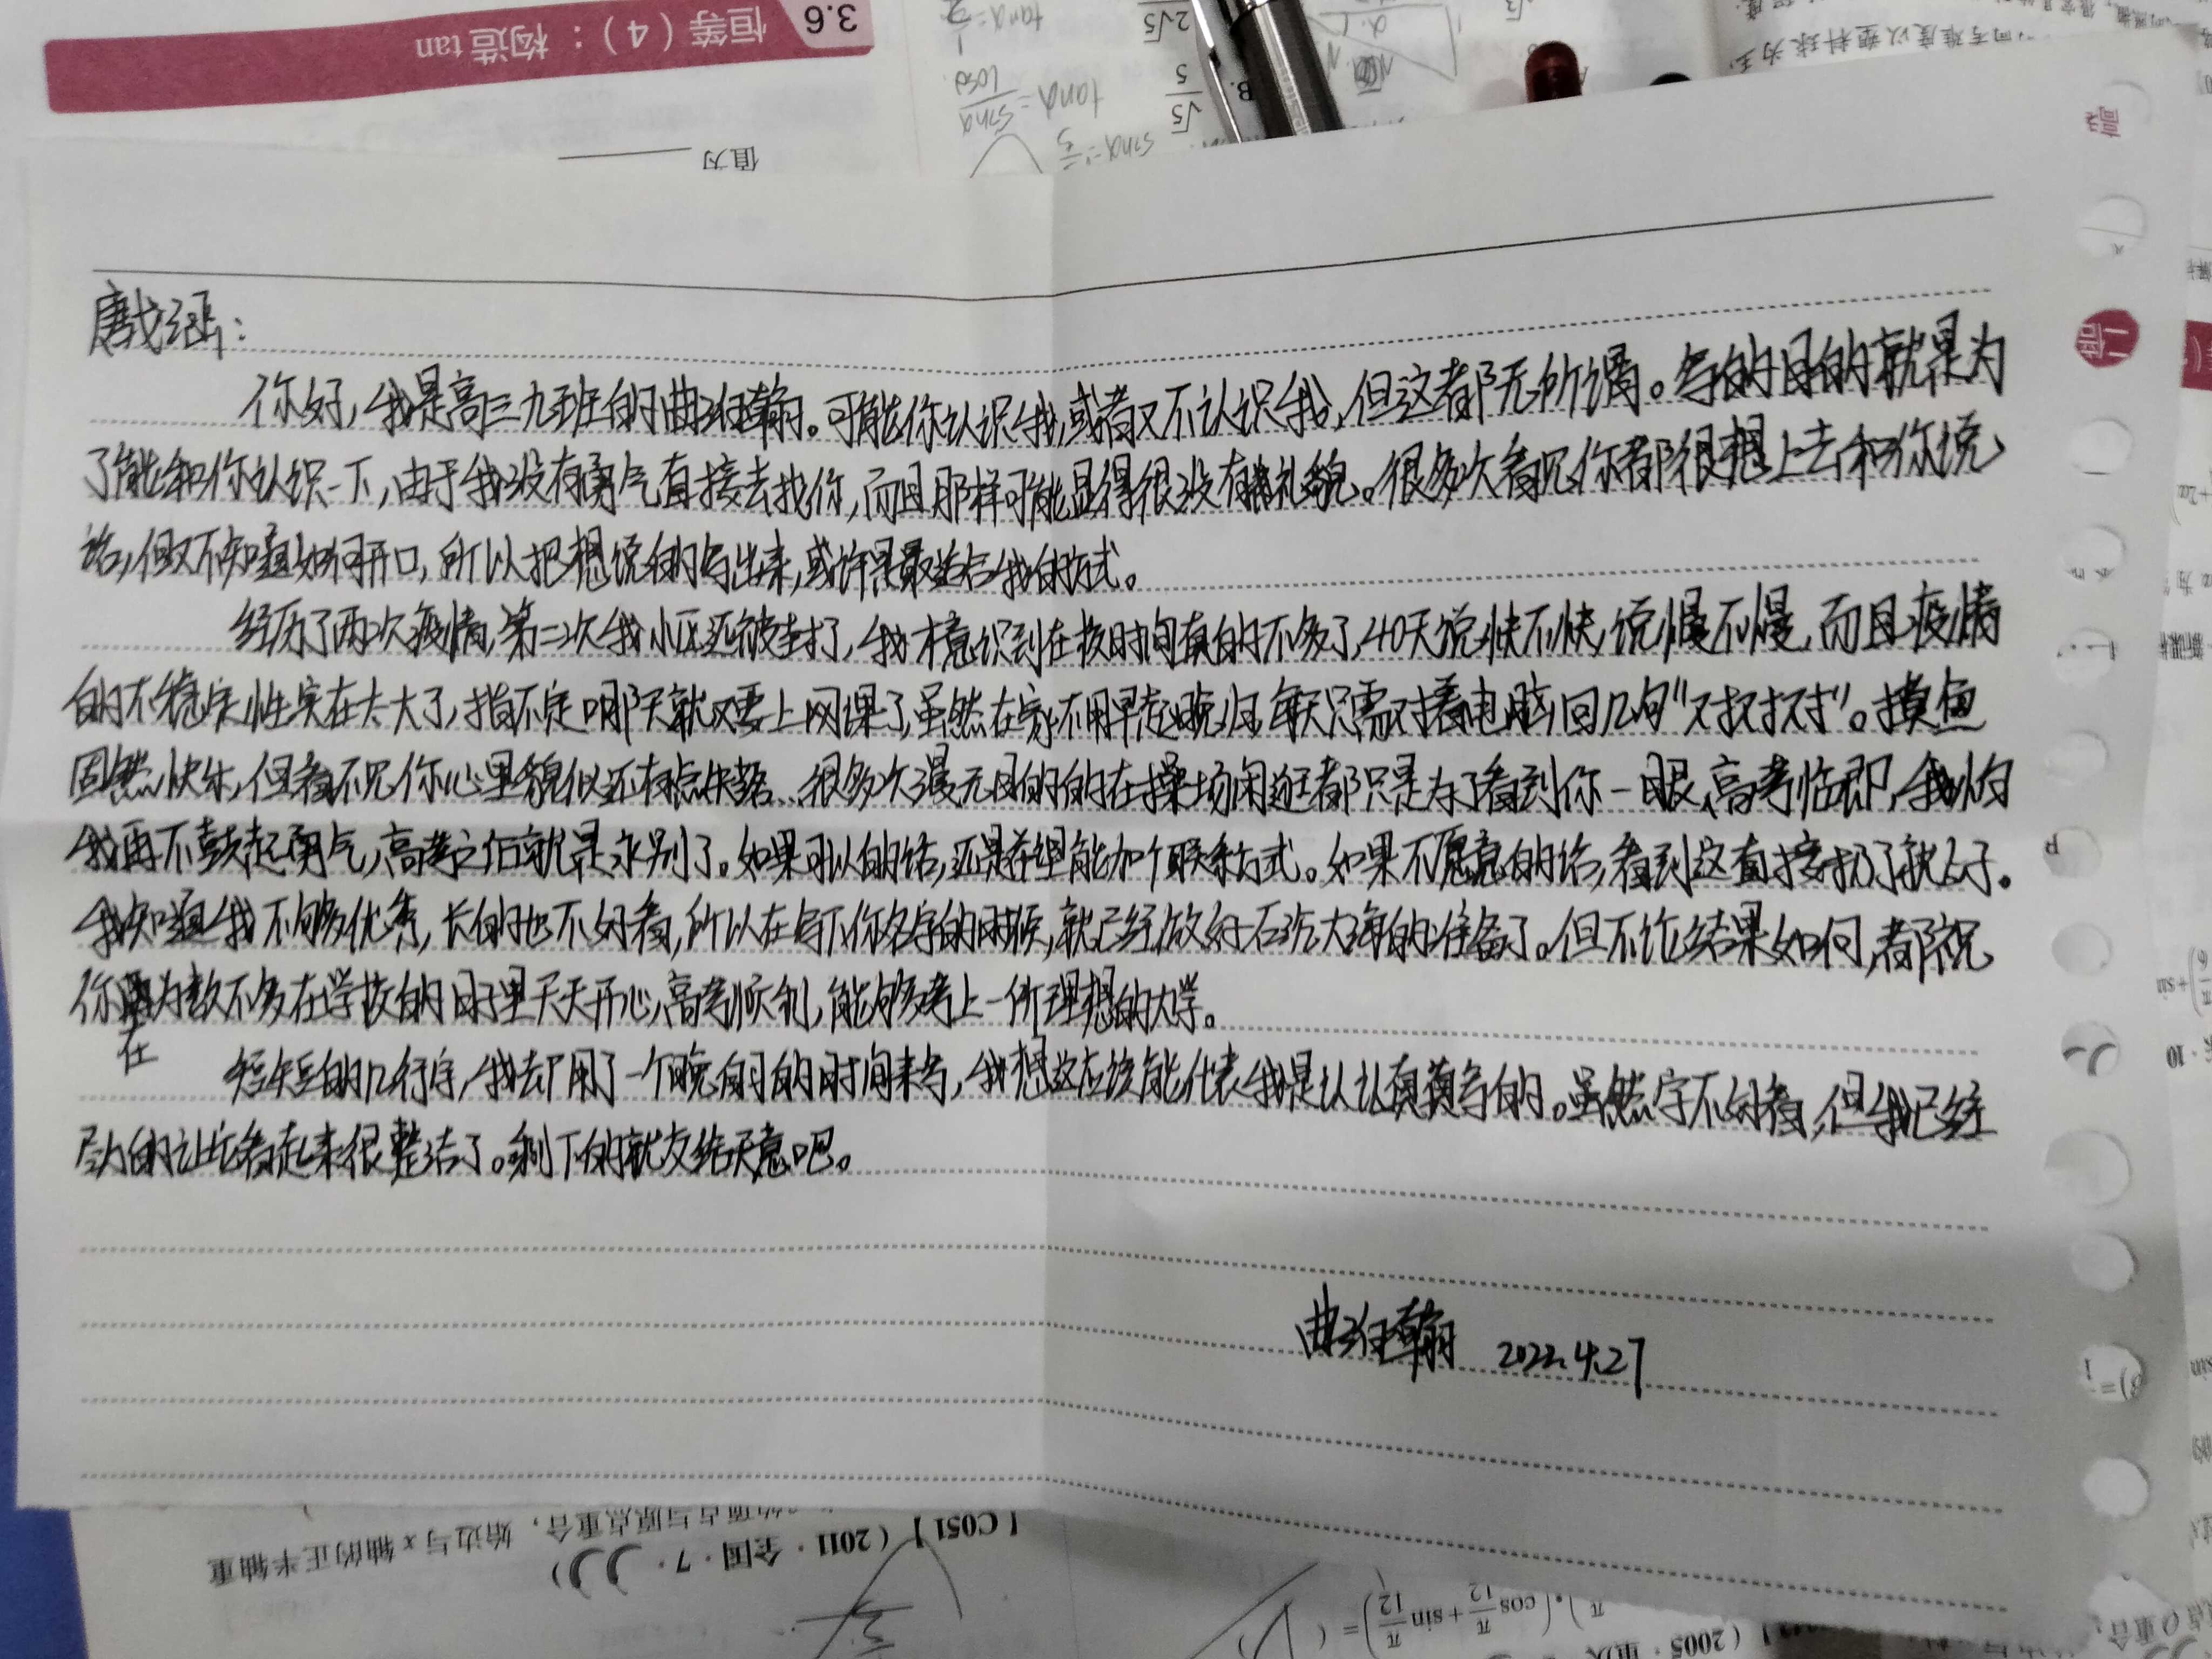 3.6 恒等（4）：构造 tan
值为
sinα
tanα=
cosα
B.
√5
5
2√5
同有难度以塑料球为主
唐戈涵：
你好，我是高三九班的曲泊翰。可能你认识我，或者又不认识我，但这都无所谓。写的目的就是为
了能和你认识一下，由于我没有勇气直接去找你，而且那样可能显得很没有礼貌。很多次看见你都很想上去和你说
话，但又不知道如何开口，所以把想说的写出来，或许是最适合我的方式。
经历了两次疫情，第二次我小区还被封了，我才意识到在校时间真的不多了，40天说快不快，说慢不慢，而且疫情
的不稳定性实在太大了，指不定哪天就又要上网课了，虽然在家不用早起晚归，每天只需对着电脑回几句“对对对”。摸鱼
固然快乐，但看不见你心里貌似还有点失落、很多次漫无目的的在操场闲逛都只是为了看到你一眼、高考临即，我怕
我再不鼓起勇气，高考之后就是永别了。如果可以的话，还是希望能加个联系方式。如果不愿意的话，看到这直接扔了就行。
我知道我不够优秀，长的也不好看，所以在写下你名字的时候，就已经做好石沉大海的准备了。但不论结果如何，都祝
你在为数不多在学校的日子里天天开心，高考顺利，能够考上一所理想的大学。
短短的几行字，我却用了一个晚自习的时间来写，我想这应该能代表我是认认真真写的。虽然字不好看，但我已经
尽力的让它看起来很整洁了。剩下的就交给天意吧。
曲泊翰 2022.4.27
【C051】（2011·全国·7·
的顶点与原点重合，始边与 x 轴的正半轴重
（cos π/12 + sin π/12）=（
（2005·重庆